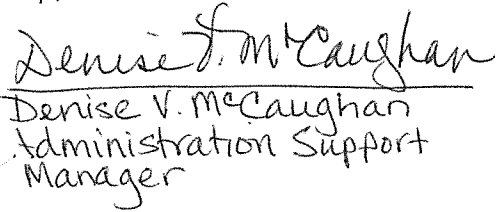 Denise V. McCaughan
Denise V. McCaughan
Administration Support
Manager